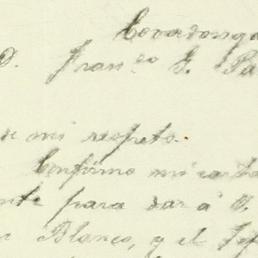 Covadonga
D. Fran.co G. Pa
de mi respeto.
Confirmo mi carta
para dar á V.
Blanco, y el